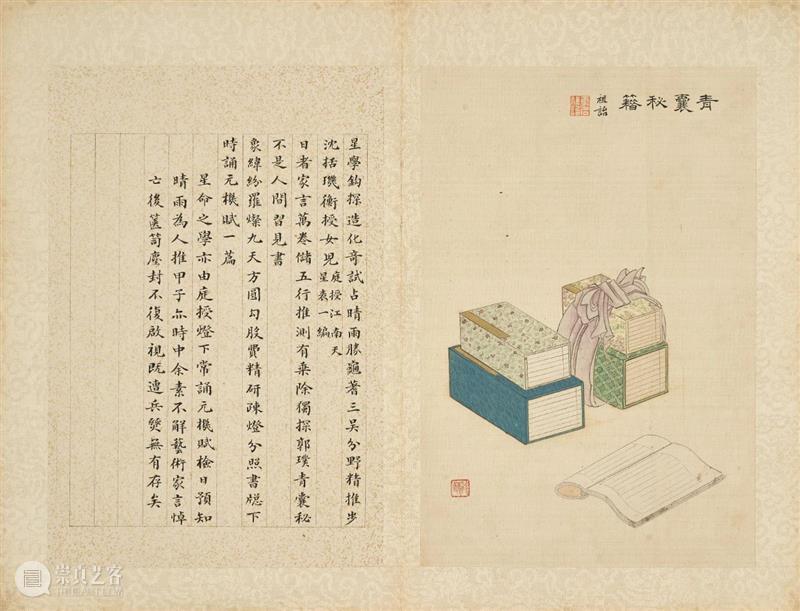 青囊秘籍
祖詒
星學鈎探造化奇試占晴雨勝龜蓍三吳分野精推步
沈括璣衡授女兒庭授江南天星表一編
日者家言萬卷儲五行推測有乘除獨探郭璞青囊秘
不是人間習見書
象緯紛羅燦九天方圓勾股費精研疎燈分照書牕下
時誦元機賦一篇
星命之學亦由庭授燈下常誦元機賦檢日預知
晴雨為人推甲子亦時中余素不解藝術家言悼
亡後篋笥塵封不復啟視既遭兵燹無有存矣
崇真艺客